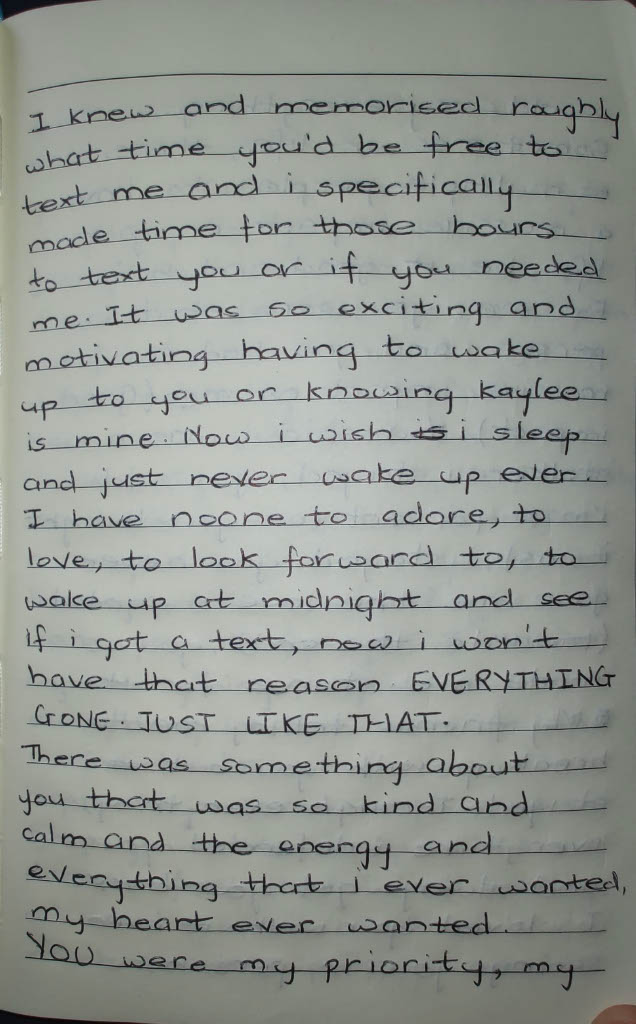 I knew and memorised roughly
what time you'd be free to
text me and i specifically
made time for those hours
to text you or if you needed
me. It was so exciting and
motivating having to wake
up to you or knowing kaylee
is mine. Now i wish is i sleep
and just never wake up ever.
I have noone to adore, to
love, to look forward to, to
wake up at midnight and see
if i got a text, now i won't
have that reason. EVERYTHING
GONE. JUST LIKE THAT.
There was something about
you that was so kind and
calm and the energy and
everything that i ever wanted,
my heart ever wanted.
YOU were my priority, my